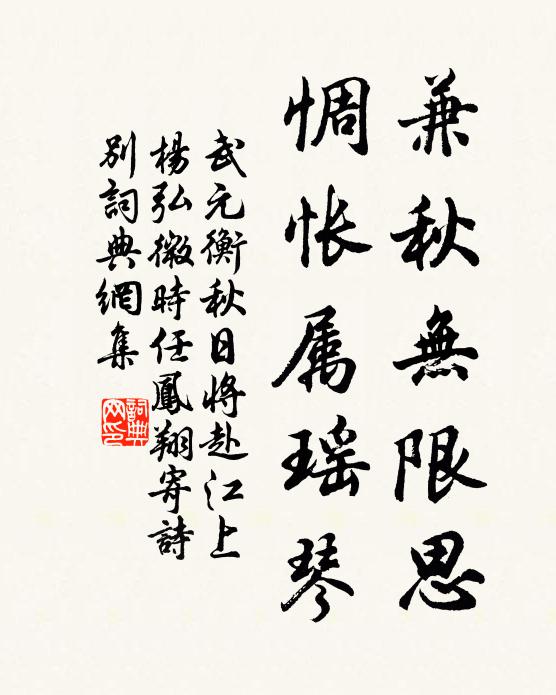 兼秋無限思
惆怅属瑶琴
武元衡秋日将赴江上
楊弘微時任鳳翔寄詩
別詞典網集
詞典
网印